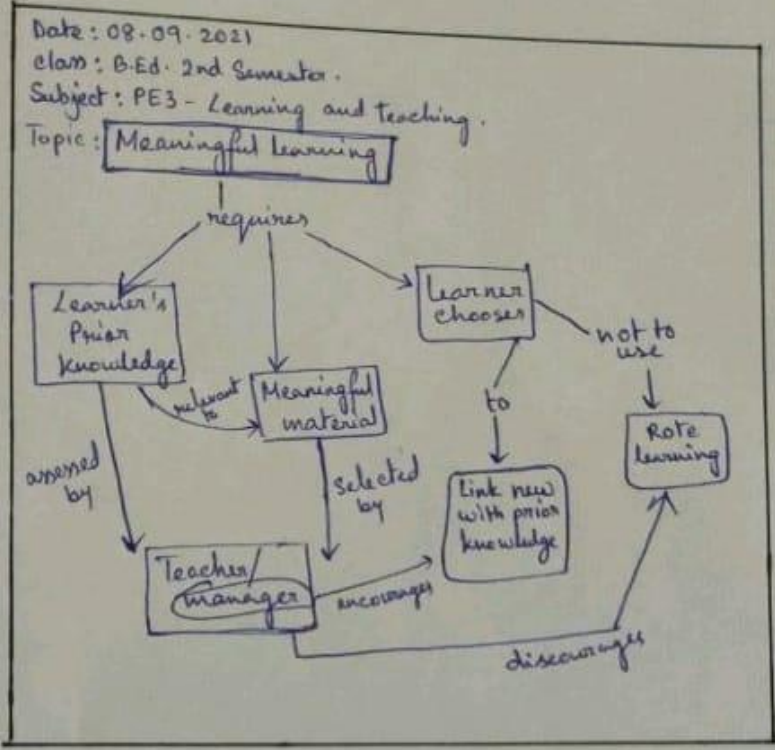 Date: 08.09.2021
Class: B.Ed. 2nd Semester.
Subject: PE3 - Learning and Teaching.
Topic: Meaningful learning
requires
Learner's
Prior
knowledge
relevant
to
Meaningful
material
learner
chooses
not to
use
to
Rote
learning
assessed
by
selected
by
Link new
with prior
knowledge
Teacher/
manager
encourages
discourages